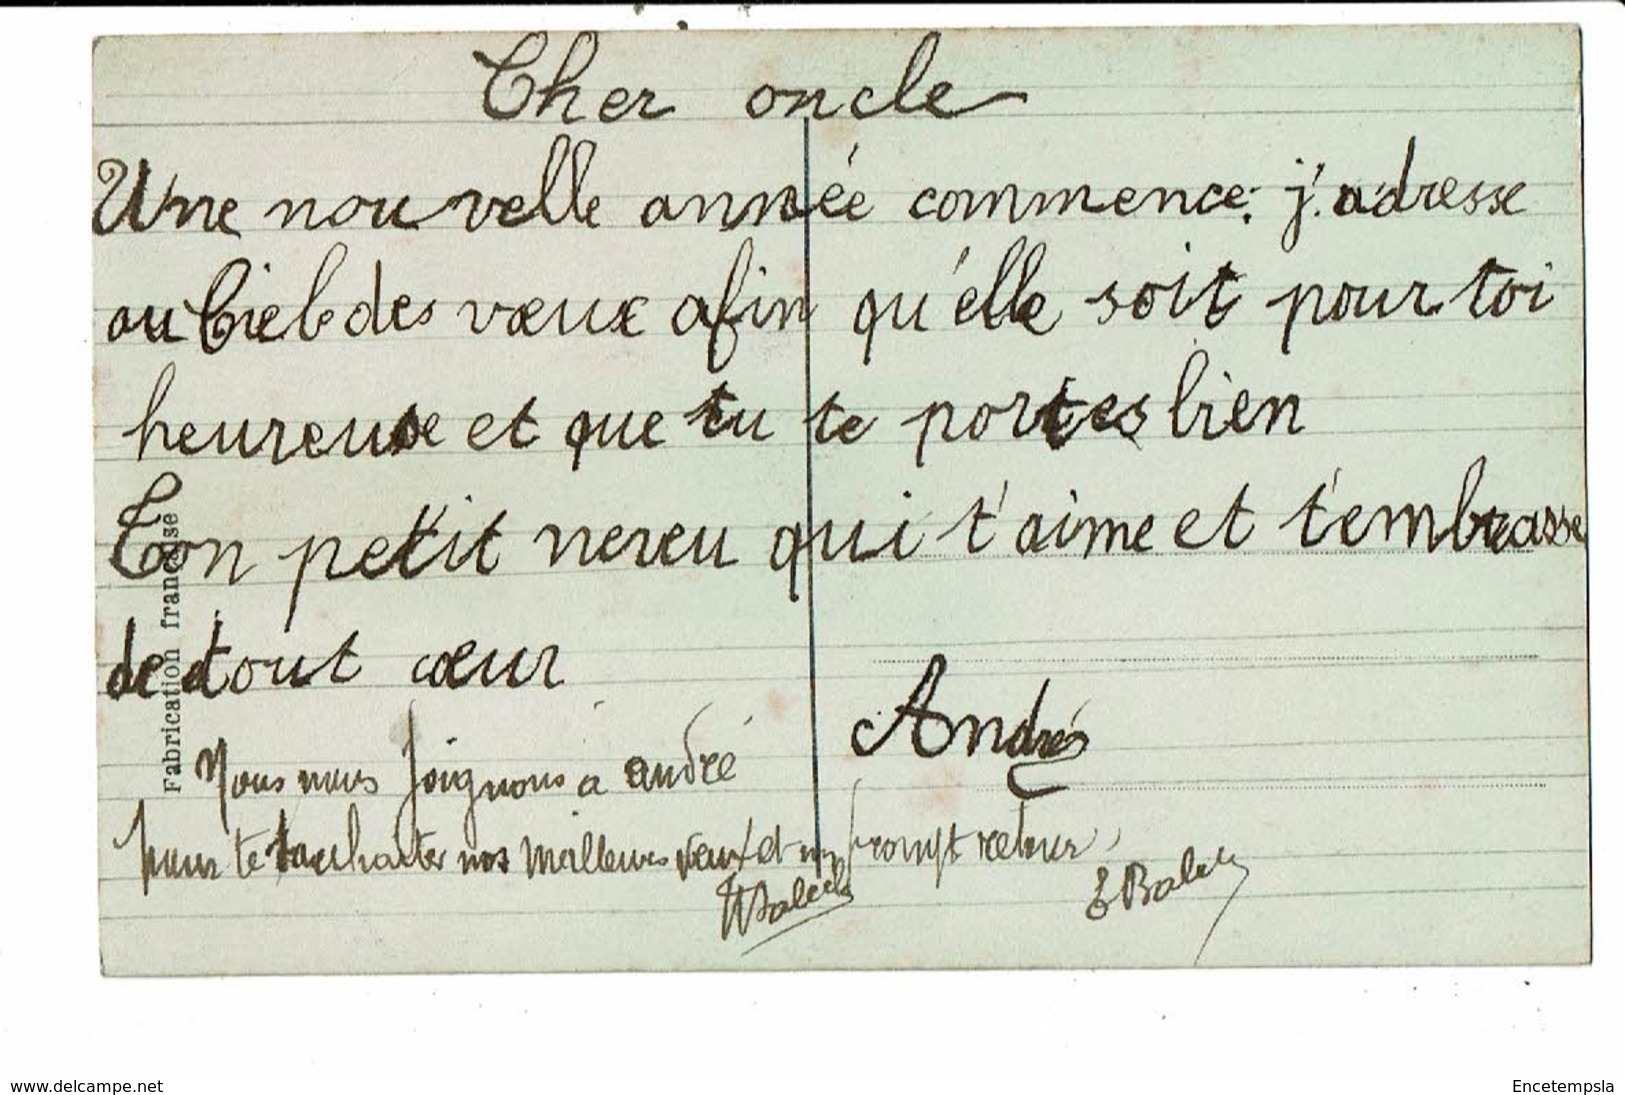 Cher oncle
Une nouvelle année commence; j'adresse
au Ciel des vœux afin qu'elle soit pour toi
heureuse et que tu te portes bien
Ton petit neveu qui t'aime et t'embrasse
de tout cœur
André
Nous nous joignons a andré
pour te souhaiter nos meilleurs vœux et un prompt retour
Fabrication française
www.delcampe.net
Encetempsla